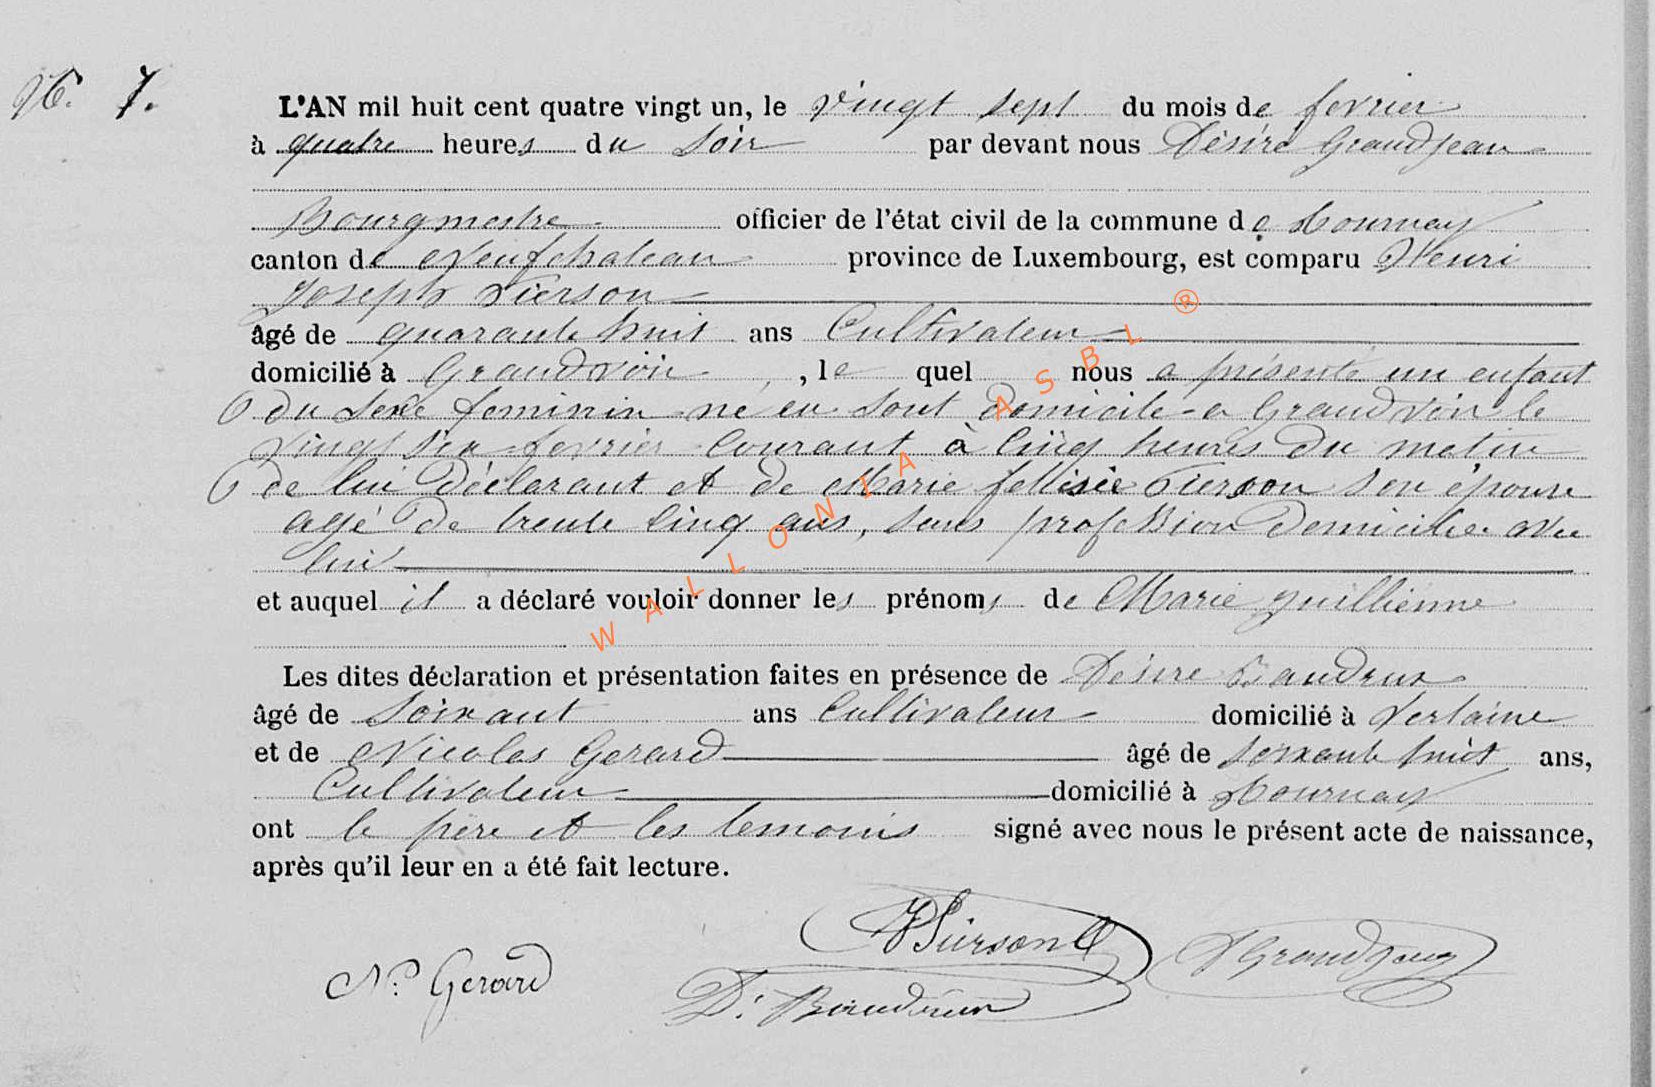 N°. 7.
L'AN mil huit cent quatre vingt un, le vingt sept du mois de fevrier
à quatre heures du Soir par devant nous Désiré Grandjean
Bourgmestre officier de l'état civil de la commune de Tournay
canton de Neufchateau province de Luxembourg, est comparu Henri
Joseph Pierson
âgé de quarante huit ans Cultivateur
domicilié à Grandvoir, le quel nous a présenté un enfant
du sexe feminin né en sont domicile a Grandvoir le
vingt six fevrier courant à cinq heures du matin
de lui déclarant et de Marie fellisie Pierson son épouse
agé de trente cinq ans, sans profession domicilie avec
lui
et auquel il a déclaré vouloir donner les prénoms de Marie guillienne
Les dites déclaration et présentation faites en présence de Désire Baudrux
âgé de Soixant ans Cultivateur domicilié à Verlaine
et de Nicolas Gerard âgé de soixante huit ans,
Cultivateur domicilié à Tournay
ont le père et les temoins signé avec nous le présent acte de naissance,
après qu'il leur en a été fait lecture.
HPierson
DGrandjean
N. Gerard
D. Baudrux
WALLONIA ASBL ®